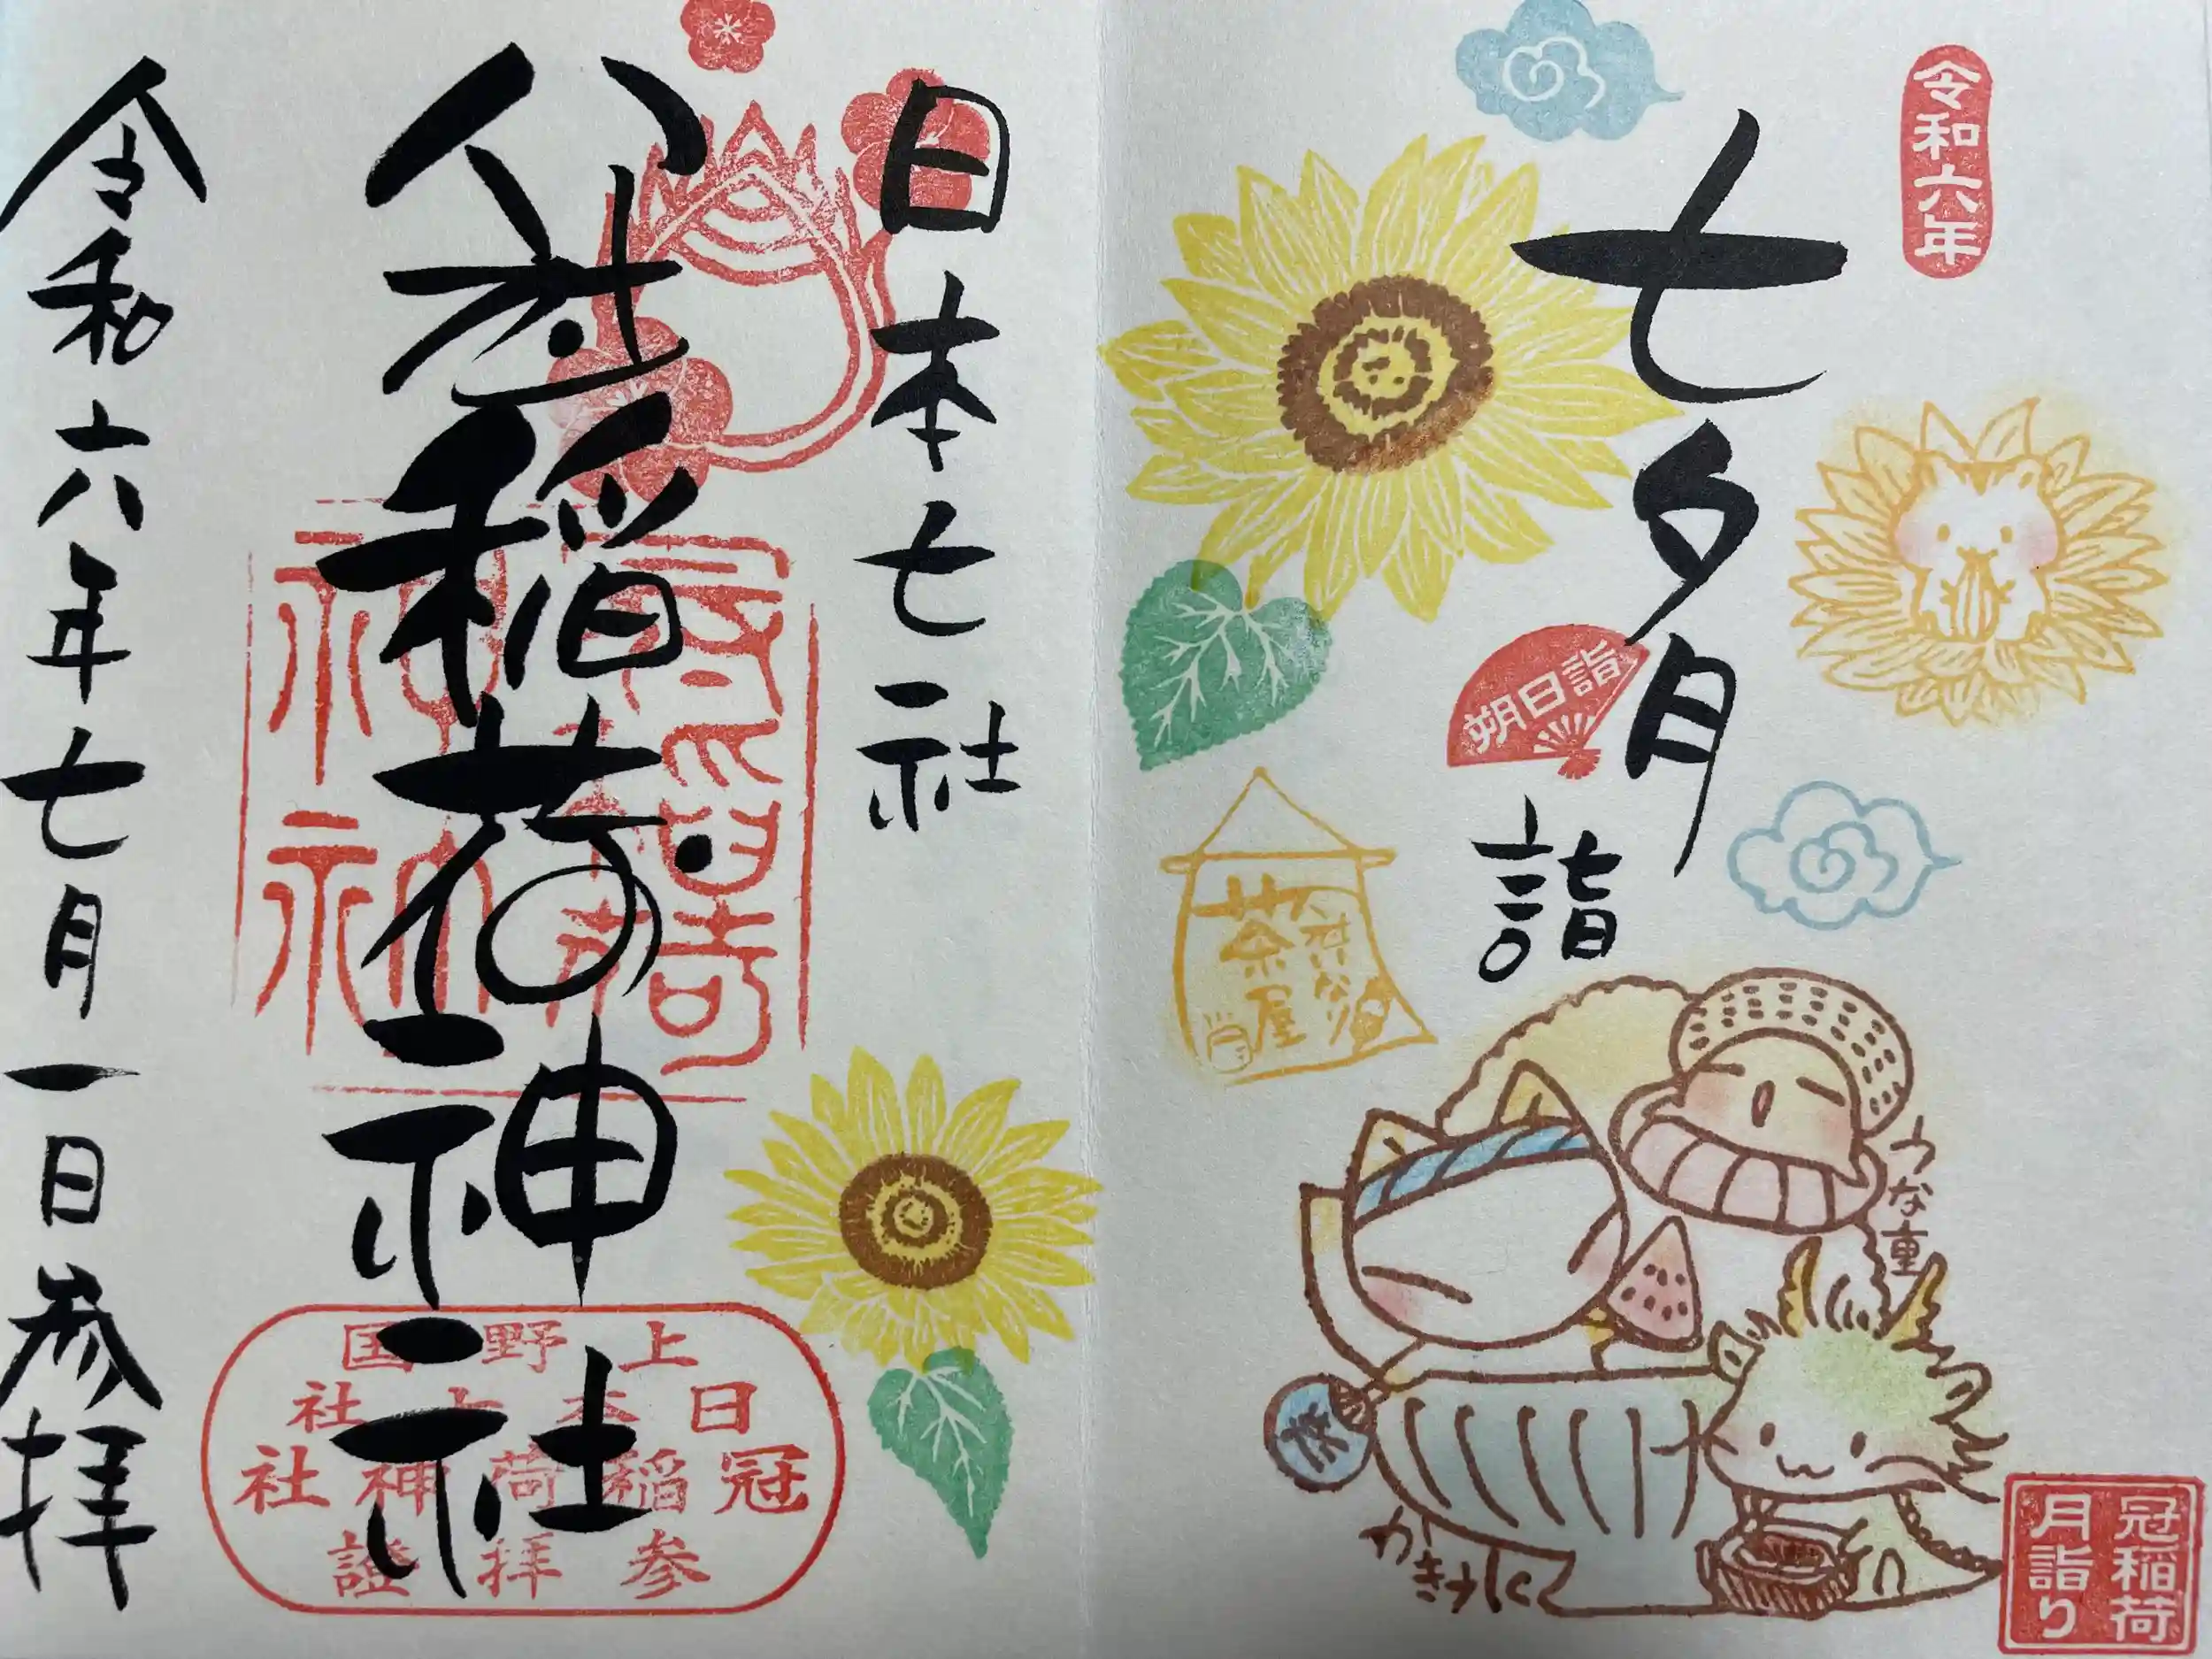 令和六年
七夕月
詣
朔日詣
茶屋
うな重
かき氷
冠稲荷
月詣り
日本七社
冠稲荷神社
上野国
日本七社
冠稲荷神社
参拝證
令和六年七月一日参拝